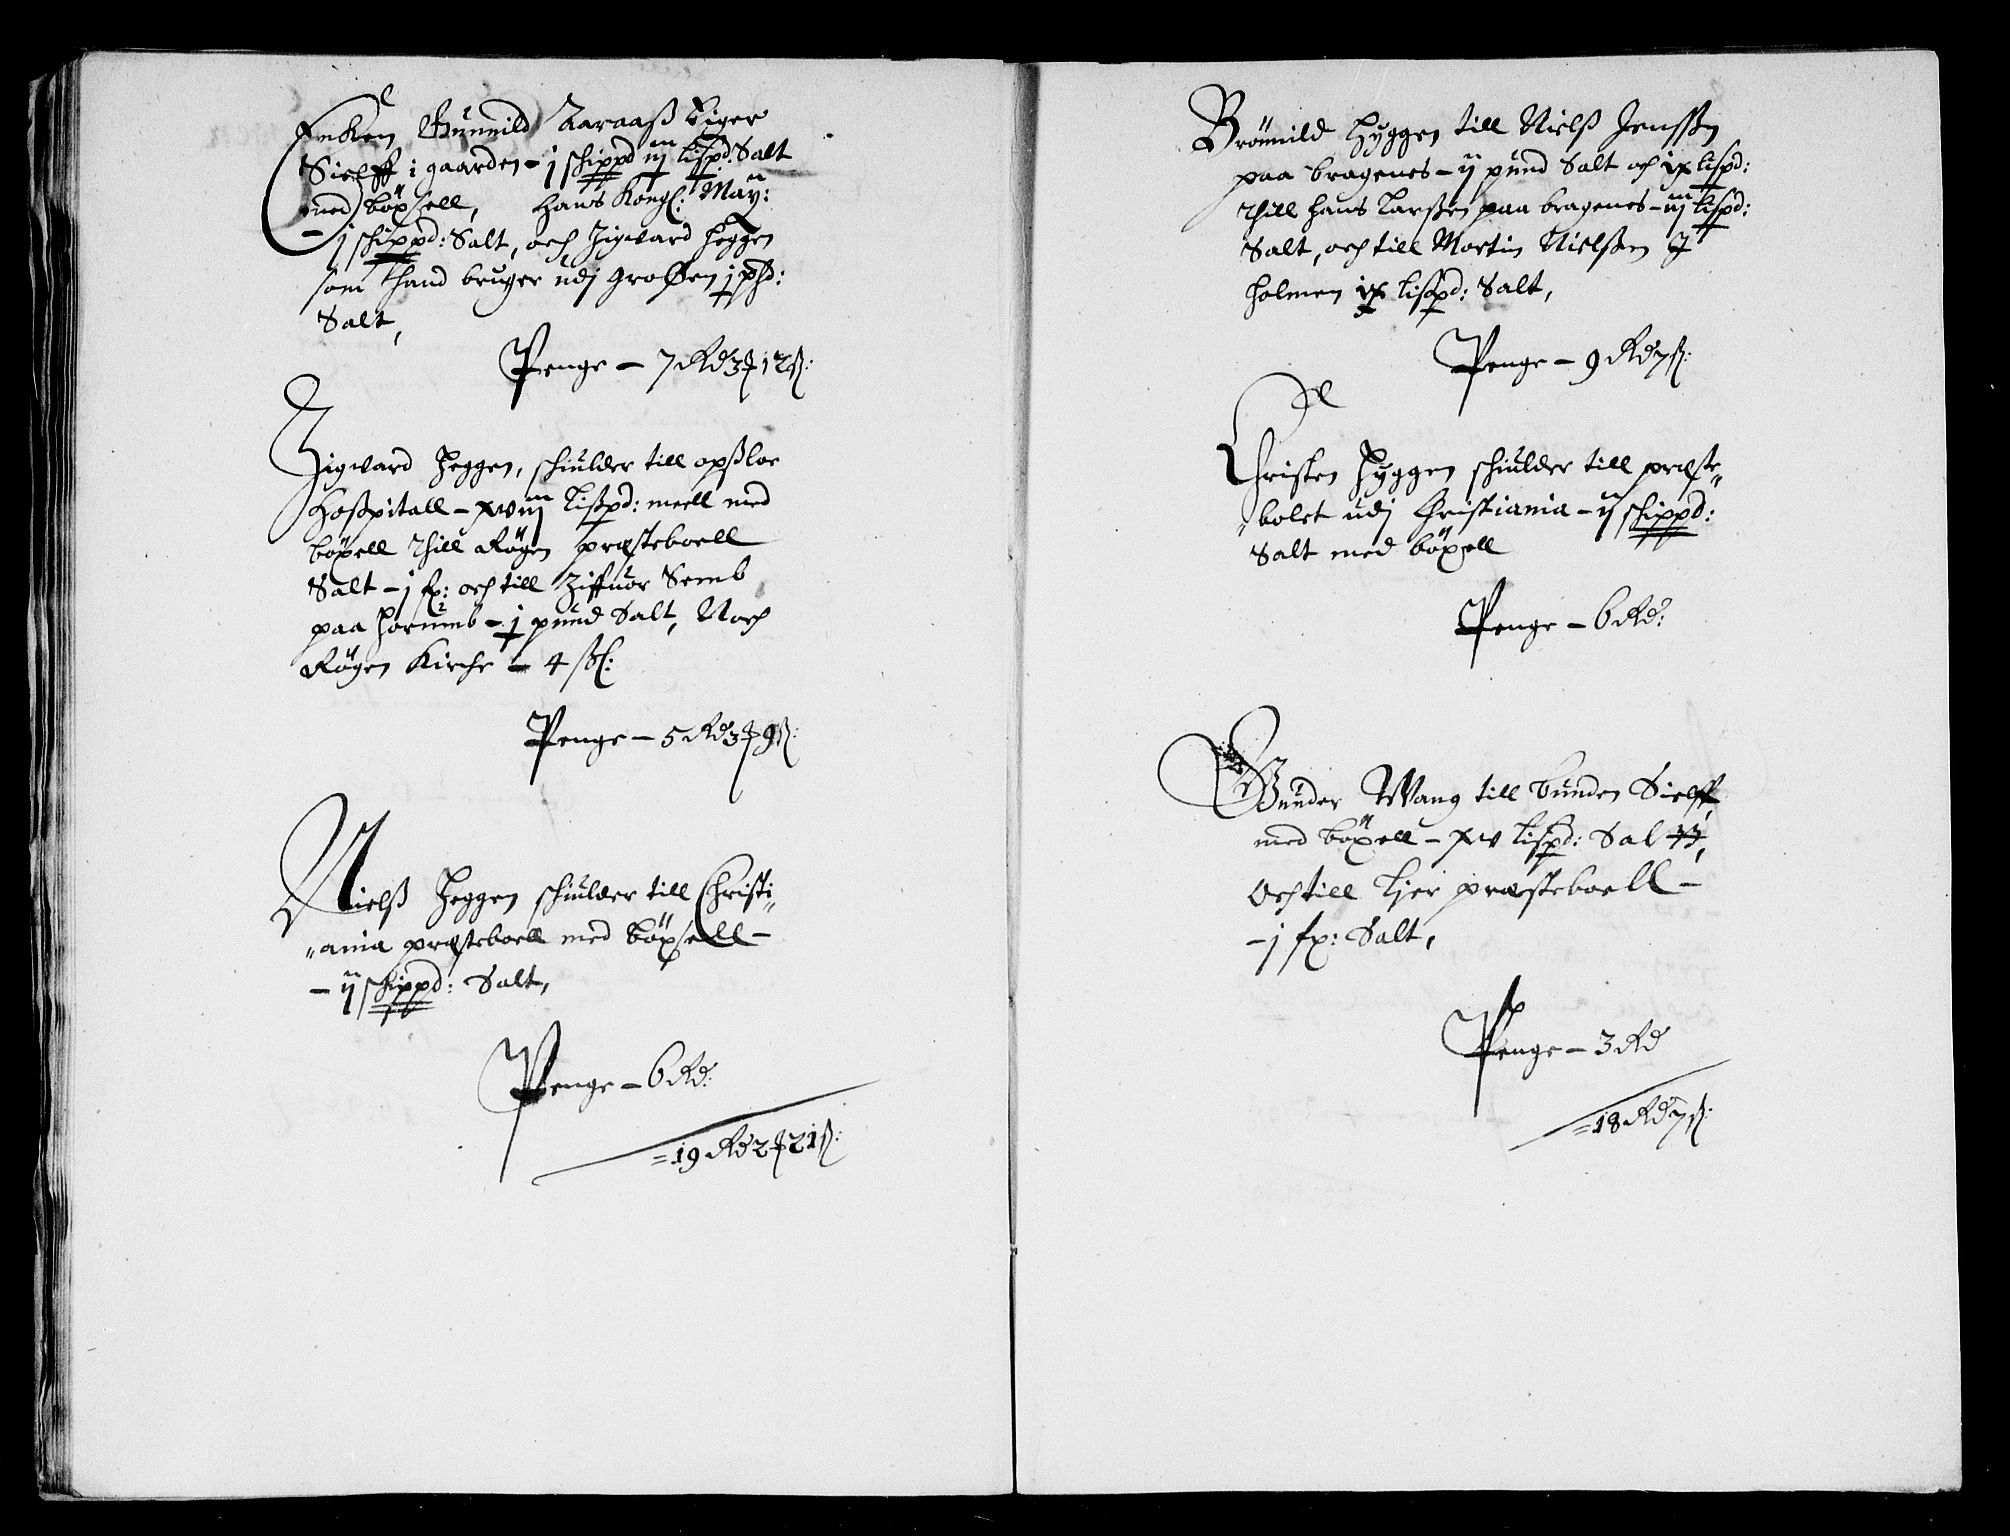 Encken Gunnild Aaraaß Eiger
Sielff i gaarden – j schippd iij lispd: Salt
med böxsell, Hans Kongl: May:
– j schippd: Salt, och Zigvard Heggen
som hand bruger udj Großen j pd:
Salt,
Penge – 7 Rd 3 ₰ 12 ß:
Zigvard Heggen, schiulder till opßloe
Hoßpitall – xviij lißpd: meell med
böxell Thill Røgen præsteboell
Salt – j fx: och till Ziffuor Semb
paa Horumb – j pund Salt, Noch
Røgen Kirche – 4 ßl:
Penge – 5 Rd 3 ₰ 9 ß:
Nielß Heggen schiulder till Christi„
„ania præsteboell med böxsell –
– ij schippd: Salt,
Penge – 6 Rd:
= 19 Rd 2 ₰ 21 ß:
Brönnild Hyggen till Nielß Jenssen
paa bragenes – ij pund Salt och ix lispd:
Thill Hans Larßen paa bragenes – iij lispd:
Salt, och till Mortin Nielßen J
Holmen ix lispd: Salt,
Penge – 9 Rd 7 ß:
Christen Hyggen schiulder till præste„
„bolet udj Christiania – ij schippd:
Salt med böxell
Penge – 6 Rd:
Gunder Wang till bunden Sielff,
med böxell – xv lispd: Salt,
Och till Lier præsteboell –
– j fx: Salt,
Penge – 3 Rd
= 18 Rd 7 ß: